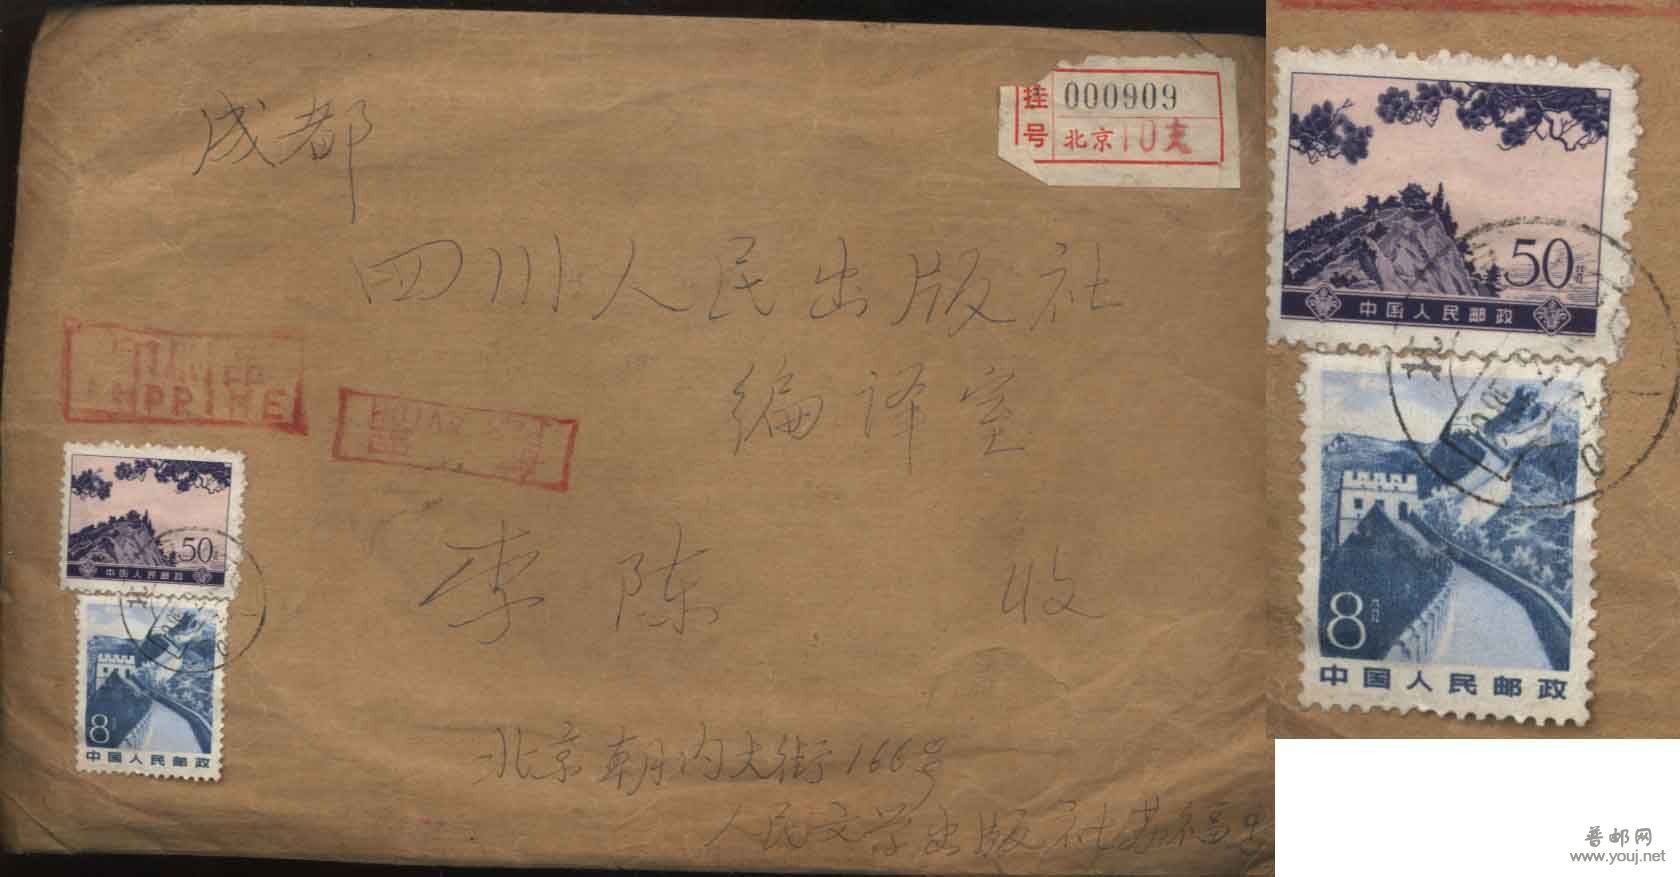 成都
挂号 000909
北京10支
四川人民出版社
编译室
李陈 收
50分
中国人民邮政
8分
中国人民邮政
北京朝内大街166号
人民文学出版社苏福忠
50分
中国人民邮政
8分
中国人民邮政
普邮网
www.youj.net